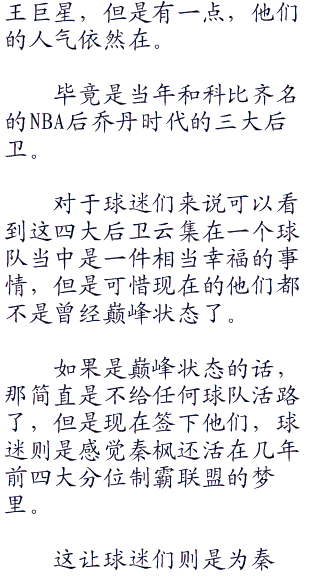 王巨星，但是有一点，他们
的人气依然在。
毕竟是当年和科比齐名
的NBA后乔丹时代的三大后
卫。
对于球迷们来说可以看
到这四大后卫云集在一个球
队当中是一件相当幸福的事
情，但是可惜现在的他们都
不是曾经巅峰状态了。
如果是巅峰状态的话，
那简直是不给任何球队活路
了，但是现在签下他们，球
迷则是感觉秦枫还活在几年
前四大分位制霸联盟的梦
里。
这让球迷们则是为秦